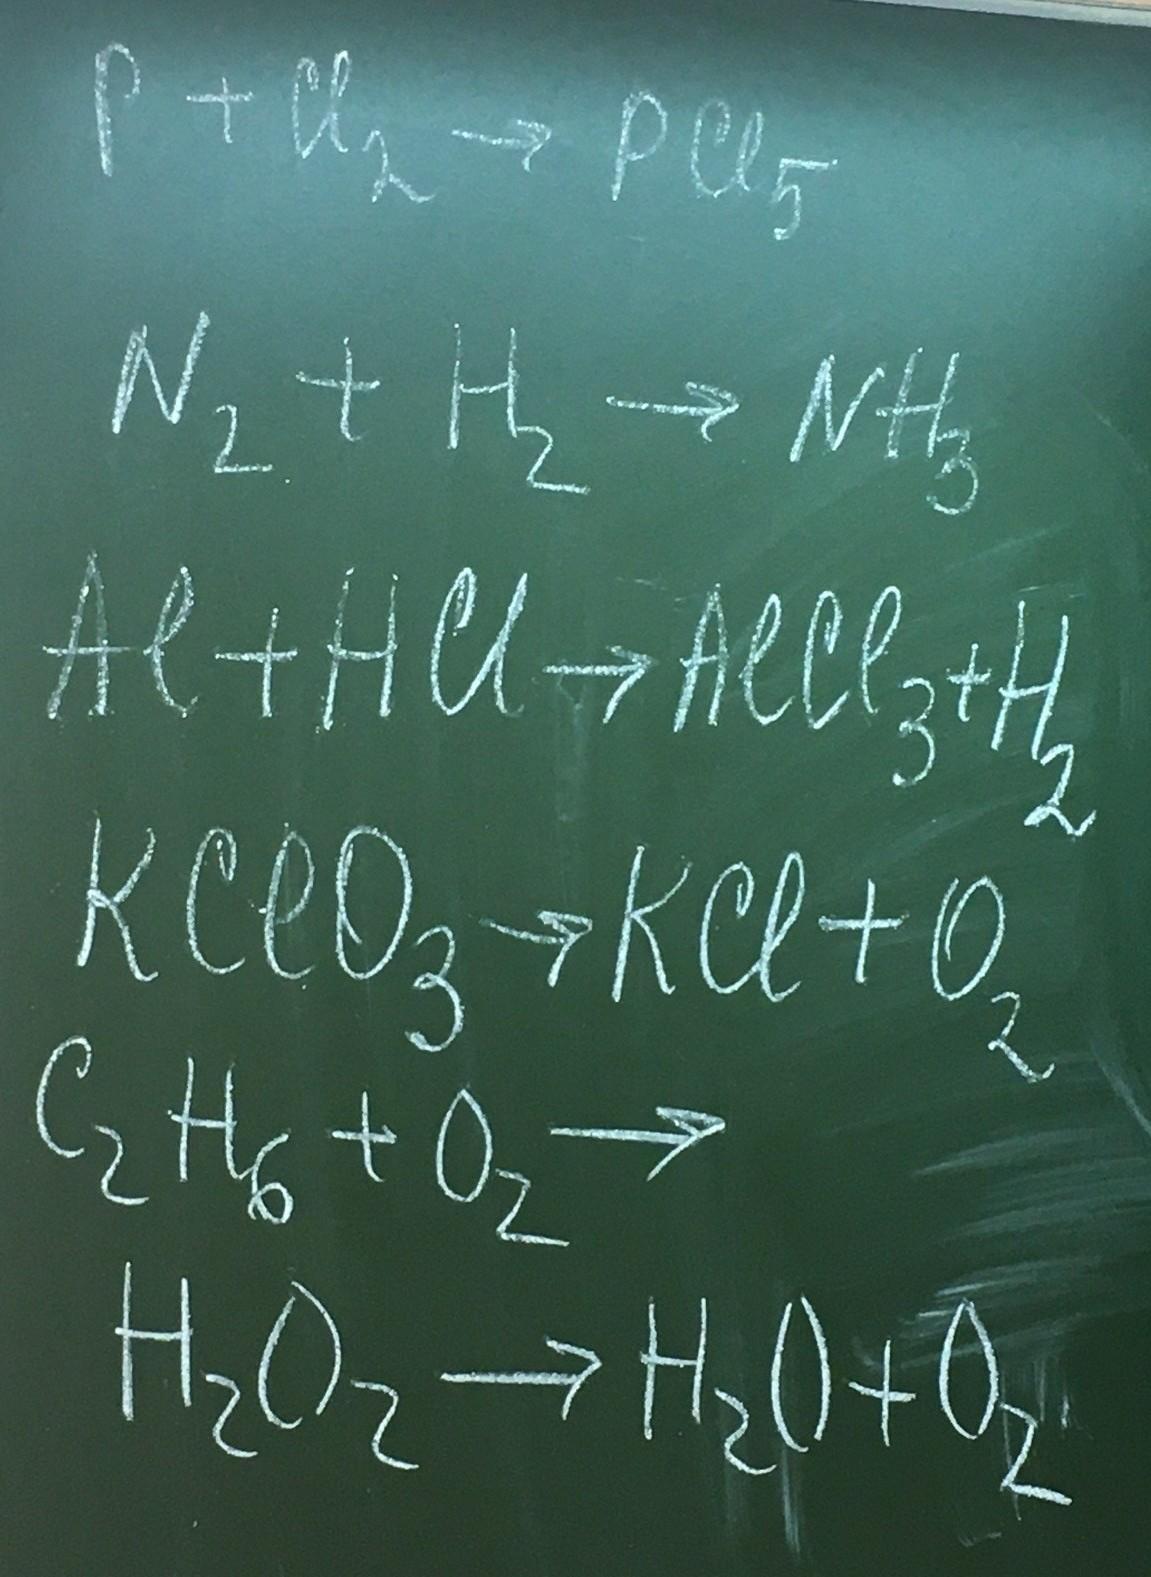 P + Cl₂ → PCl₅
N₂ + H₂ → NH₃
Al + HCl → AlCl₃ + H₂
KClO₃ → KCl + O₂
C₂H₆ + O₂ →
H₂O₂ → H₂O + O₂